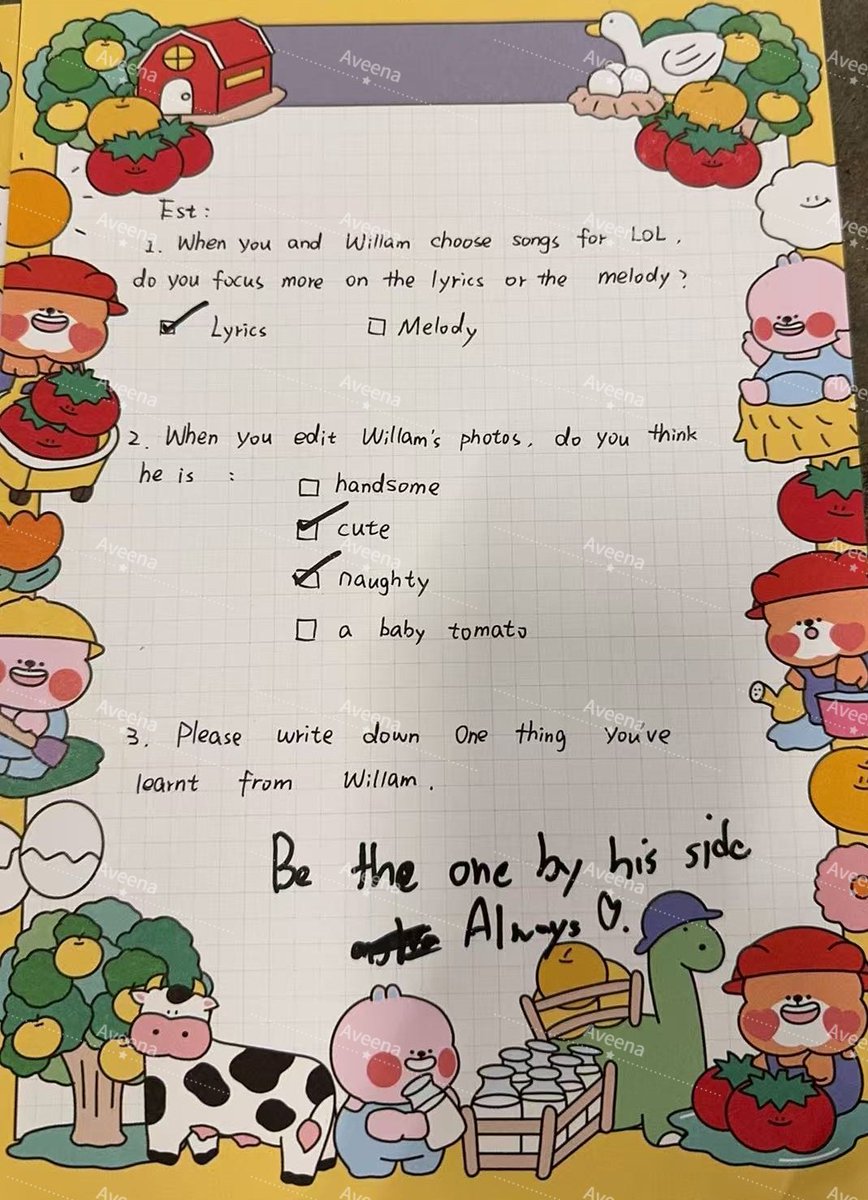 Est :
1. When you and Willam choose songs for LOL,
do you focus more on the lyrics or the melody?
☑ Lyrics ☐ Melody
2. When you edit Willam's photos, do you think
he is :
☐ handsome
☑ cute
☑ naughty
☐ a baby tomato
3. Please write down one thing you've
learnt from Willam.
Be the one by his side
Always ♡.
Aveena